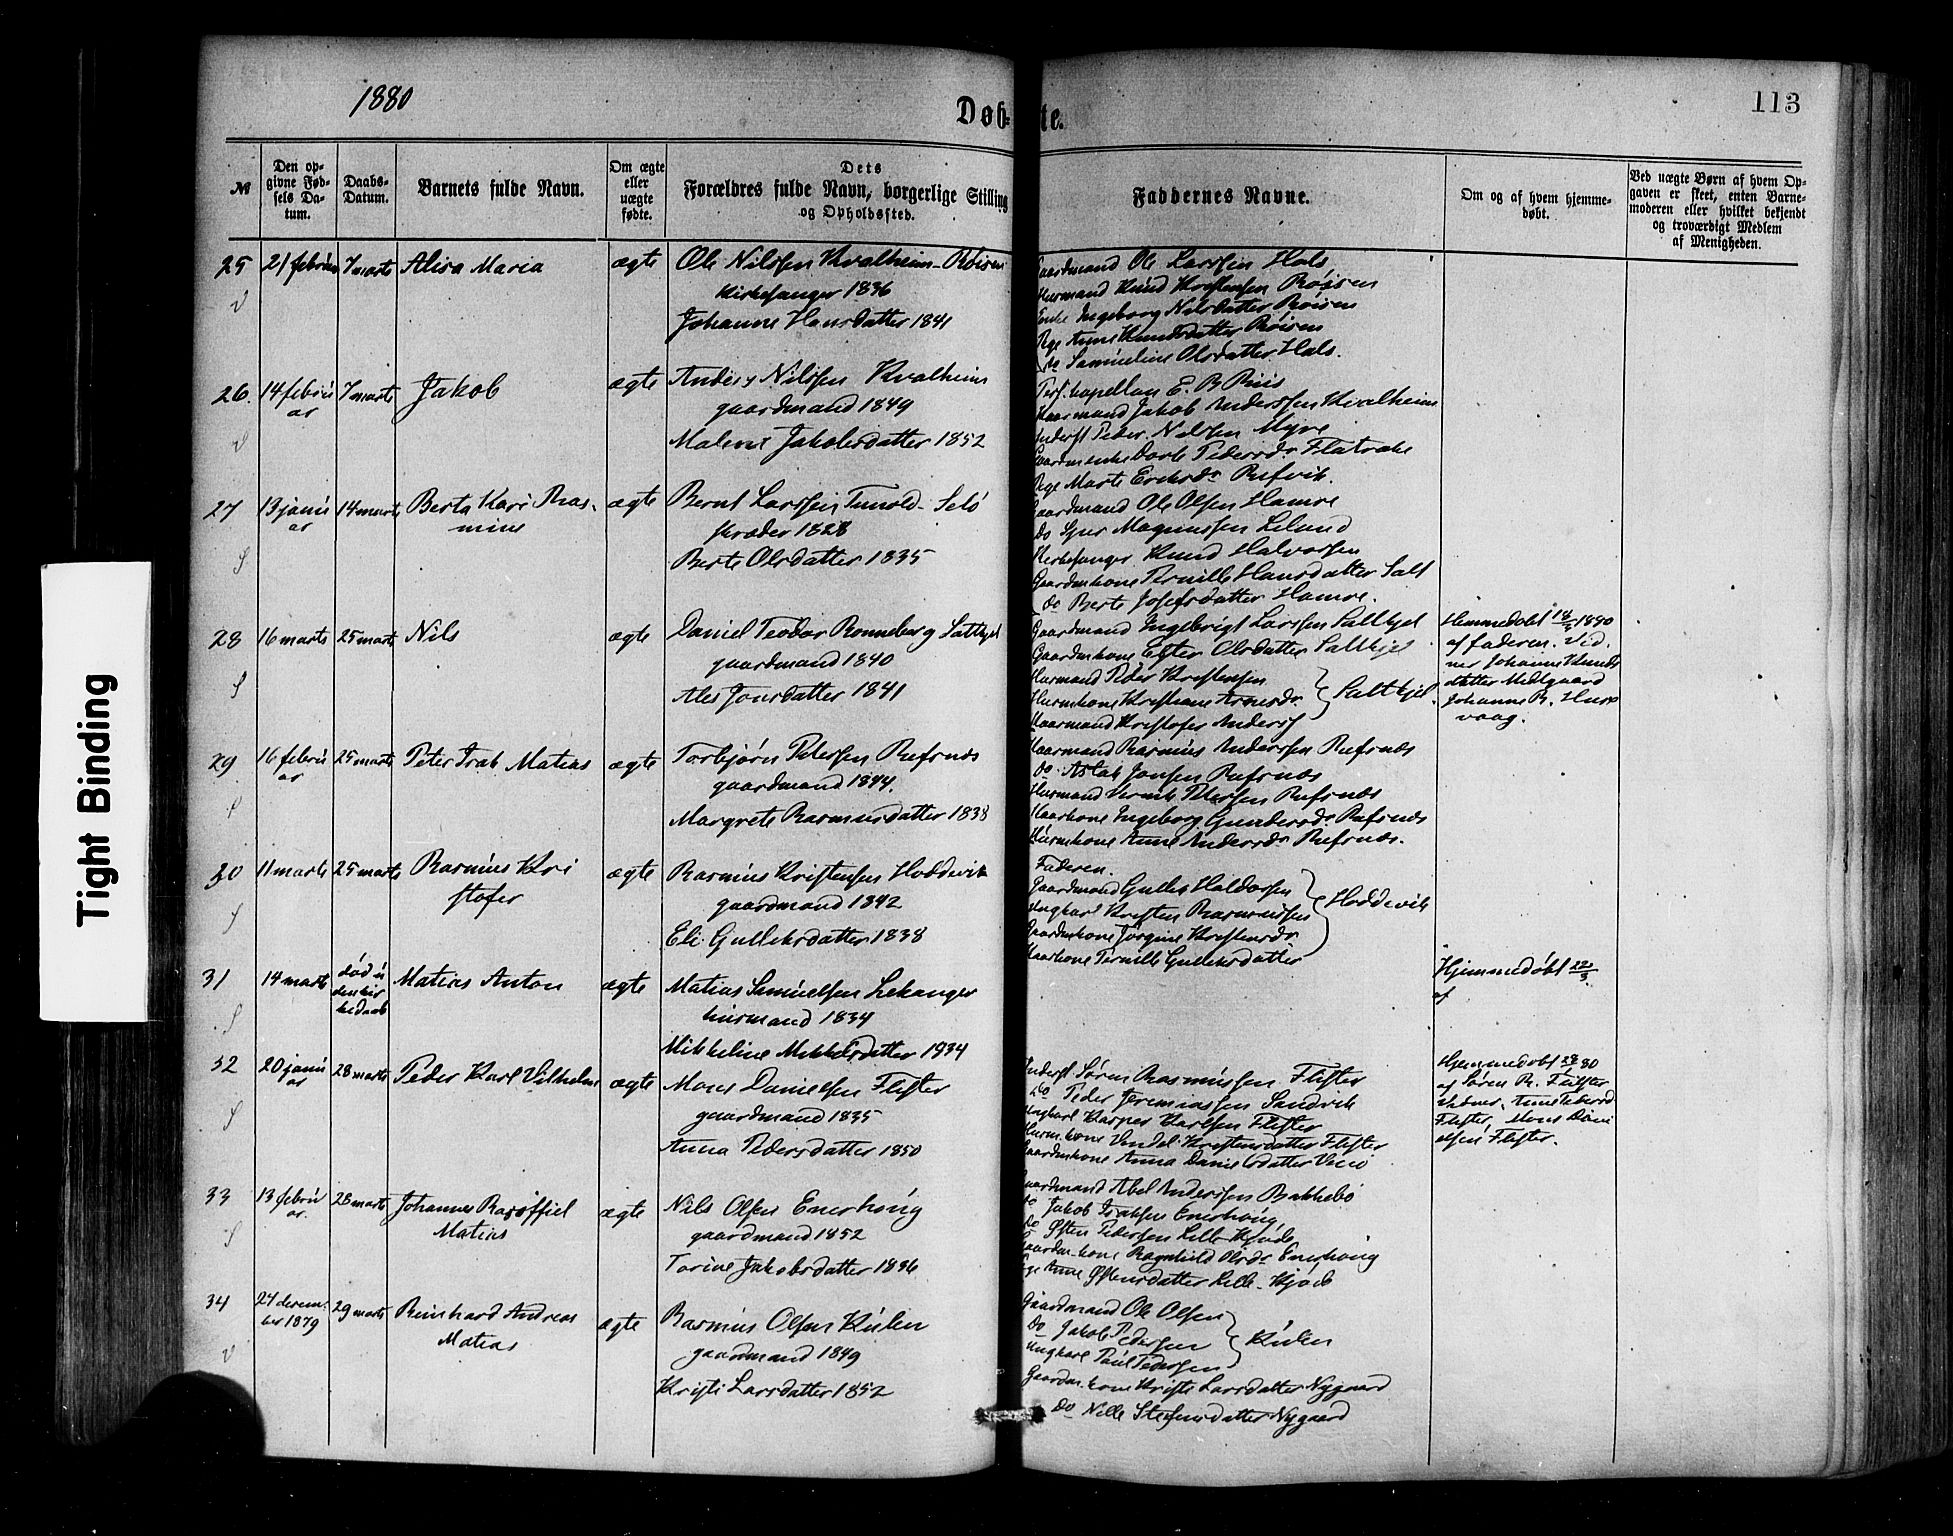 1880
Døb-te.
113
Tight Binding
№
Den op-
givne Fød-
sels Da-
tum.
Daabs-
Datum.
Barnets fulde Navn.
Om ægte
eller
uægte
fødte.
Dets
Forældres fulde Navn, borgerlige Stilling
og Opholdssted.
Faddernes Navne.
Om og af hvem hjemme-
døbt.
Ved uægte Børn af hvem Op-
gaven er skeet, enten Barne-
moderen eller hvilket bekjendt
og troværdigt Medlem
af Menigheden.
25 21 februar 7 marts Alisa Maria ægte Ole Nilssen Kvalheim - Røisen
kirkesanger 1836
Johanne Hansdatter 1841
Gaardmand Ole Larssen Hals
Husmand Knud Kristensen Røisen
Enke Ingeborg Nilsdatter Røisen
Pige Anne Knudsdatter Røisen
do Samueline Olsdatter Hals.
26. 14 febru
ar 7 marts Jakob ægte Anders Nilssen Kvalheim
gaardmand 1849
Malene Jakobsdatter 1852
Pers. kapellan E. B.
Kaarmand Jakob Anderssen Kvalheim
Inderst Peder Nilssen Myre
Gaardm enke Dorte Pedersdr Flatrake
Pige Marte Eriksdr Refvik.
27 13 janu
ar 14 marts Berta Kari Ras-
mine ægte Bernt Larssen Tunold - Selø
skræder 1828
Berte Olsdatter 1835
Gaardmand Ole Olsen Hamre
do Sjur Magnussen Leland
Kirkesanger Knud Halvorsen
Gaardmkone Pernille Hansdatter Salt
do Berte Josefsdatter Hamre.
28 16 marts 25 marts Nils ægte Daniel Teodor Ronneberg Saltkjel
gaardmand 1840
Ales Jonsdatter 1841
Gaardmand Ingebrigt Larssen Saltkjel
Gaardmkone Ester Olsdatter Saltkjel
Husmand Peder Kristensen
Husmkone Kristiane Arnesdr. Saltkjel.
Kaarmand Kristofer Anderss
Hjemmedøbt 18/3 1880
af faderen. Vid-
ner Johanne Knuds
datter Midtgaard
Johanne R. Hus
vaag.
29 16 febru
ar 25 marts Peter Isak Matias ægte Torbjørn Petersen Refsnæs
gaardmand 1844.
Margrete Rasmusdatter 1838
Kaarmand Rasmus Anderssen Refsnæs
do. Aslak Jonsen Refsnæs
Husmand Henrik Petersen Refsnæs
Kaarkone Ingeborg Gundersdr Refsnæs
Husmkone Anne Andersdr Refsnæs.
30 11 marts 25 marts Rasmus Kri
stofer ægte Rasmus Kristensen Hoddevik
gaardmand 1842
Eli Gulleksdatter 1838
Faderen.
Gaardmand Gullik Haldorsen
Ungkarl Kristen Rasmussen Hoddevik
Gaardmkone Jørgine Kristensdr
Kaarkone Pernille Gulleksdatter
31 14 marts død u
den kir
kedaab Matias Anton ægte Matias Samuelsen Lekanger
husmand 1834
Mikkeline Mikkelsdatter 1834
Hjemmedøbt 22/3.
af
32 20 janu
ar 28 marts Peder Karl Vilhelm ægte Mons Danielsen Flister
gaardmand 1835
Anna Pedersdatter 1850
Inderst Søren Rasmussen Flister
do Peder Jeremiassen Sandvik
Ungkarl Kasper Karlsen Flister
Husm.kone Vendel Kristensdatter Flister
Gaardmkone Anna Danielsdatter
Hjemmedøbt 80
af Søren R. Flister
vidner. Anne
Flister, Mons Dani
elsen Flister.
33 13 febru
ar. 28 marts Johannes
Matias ægte Nils Olsen Enerhoug
gaardmand 1852
Torine Jakobsdatter 1836
Gaardmand Abel Anderssen Bakkebø
do Jakob Isaksen Enerhoug
do Østen Pedersen Lille-Kjøde
Gaardm.kone Ragnhild Olsdr Enerhoug
Pige Anne Østensdatter Lille-Kjøde
34 24 decem-
ber 1879 29 marts Reinhard Andreas
Matias ægte Rasmus Olsen Kulen
gaardmand 1849
Kristi Larsdatter 1852
Gaardmand Ole Olsen
do Jakob Pedersen Kulen
Ungkarl Paul Pedersen
Gaardm.kone Kristi Larsdatter Nygaard
do Nille Stefensdatter Nygaard